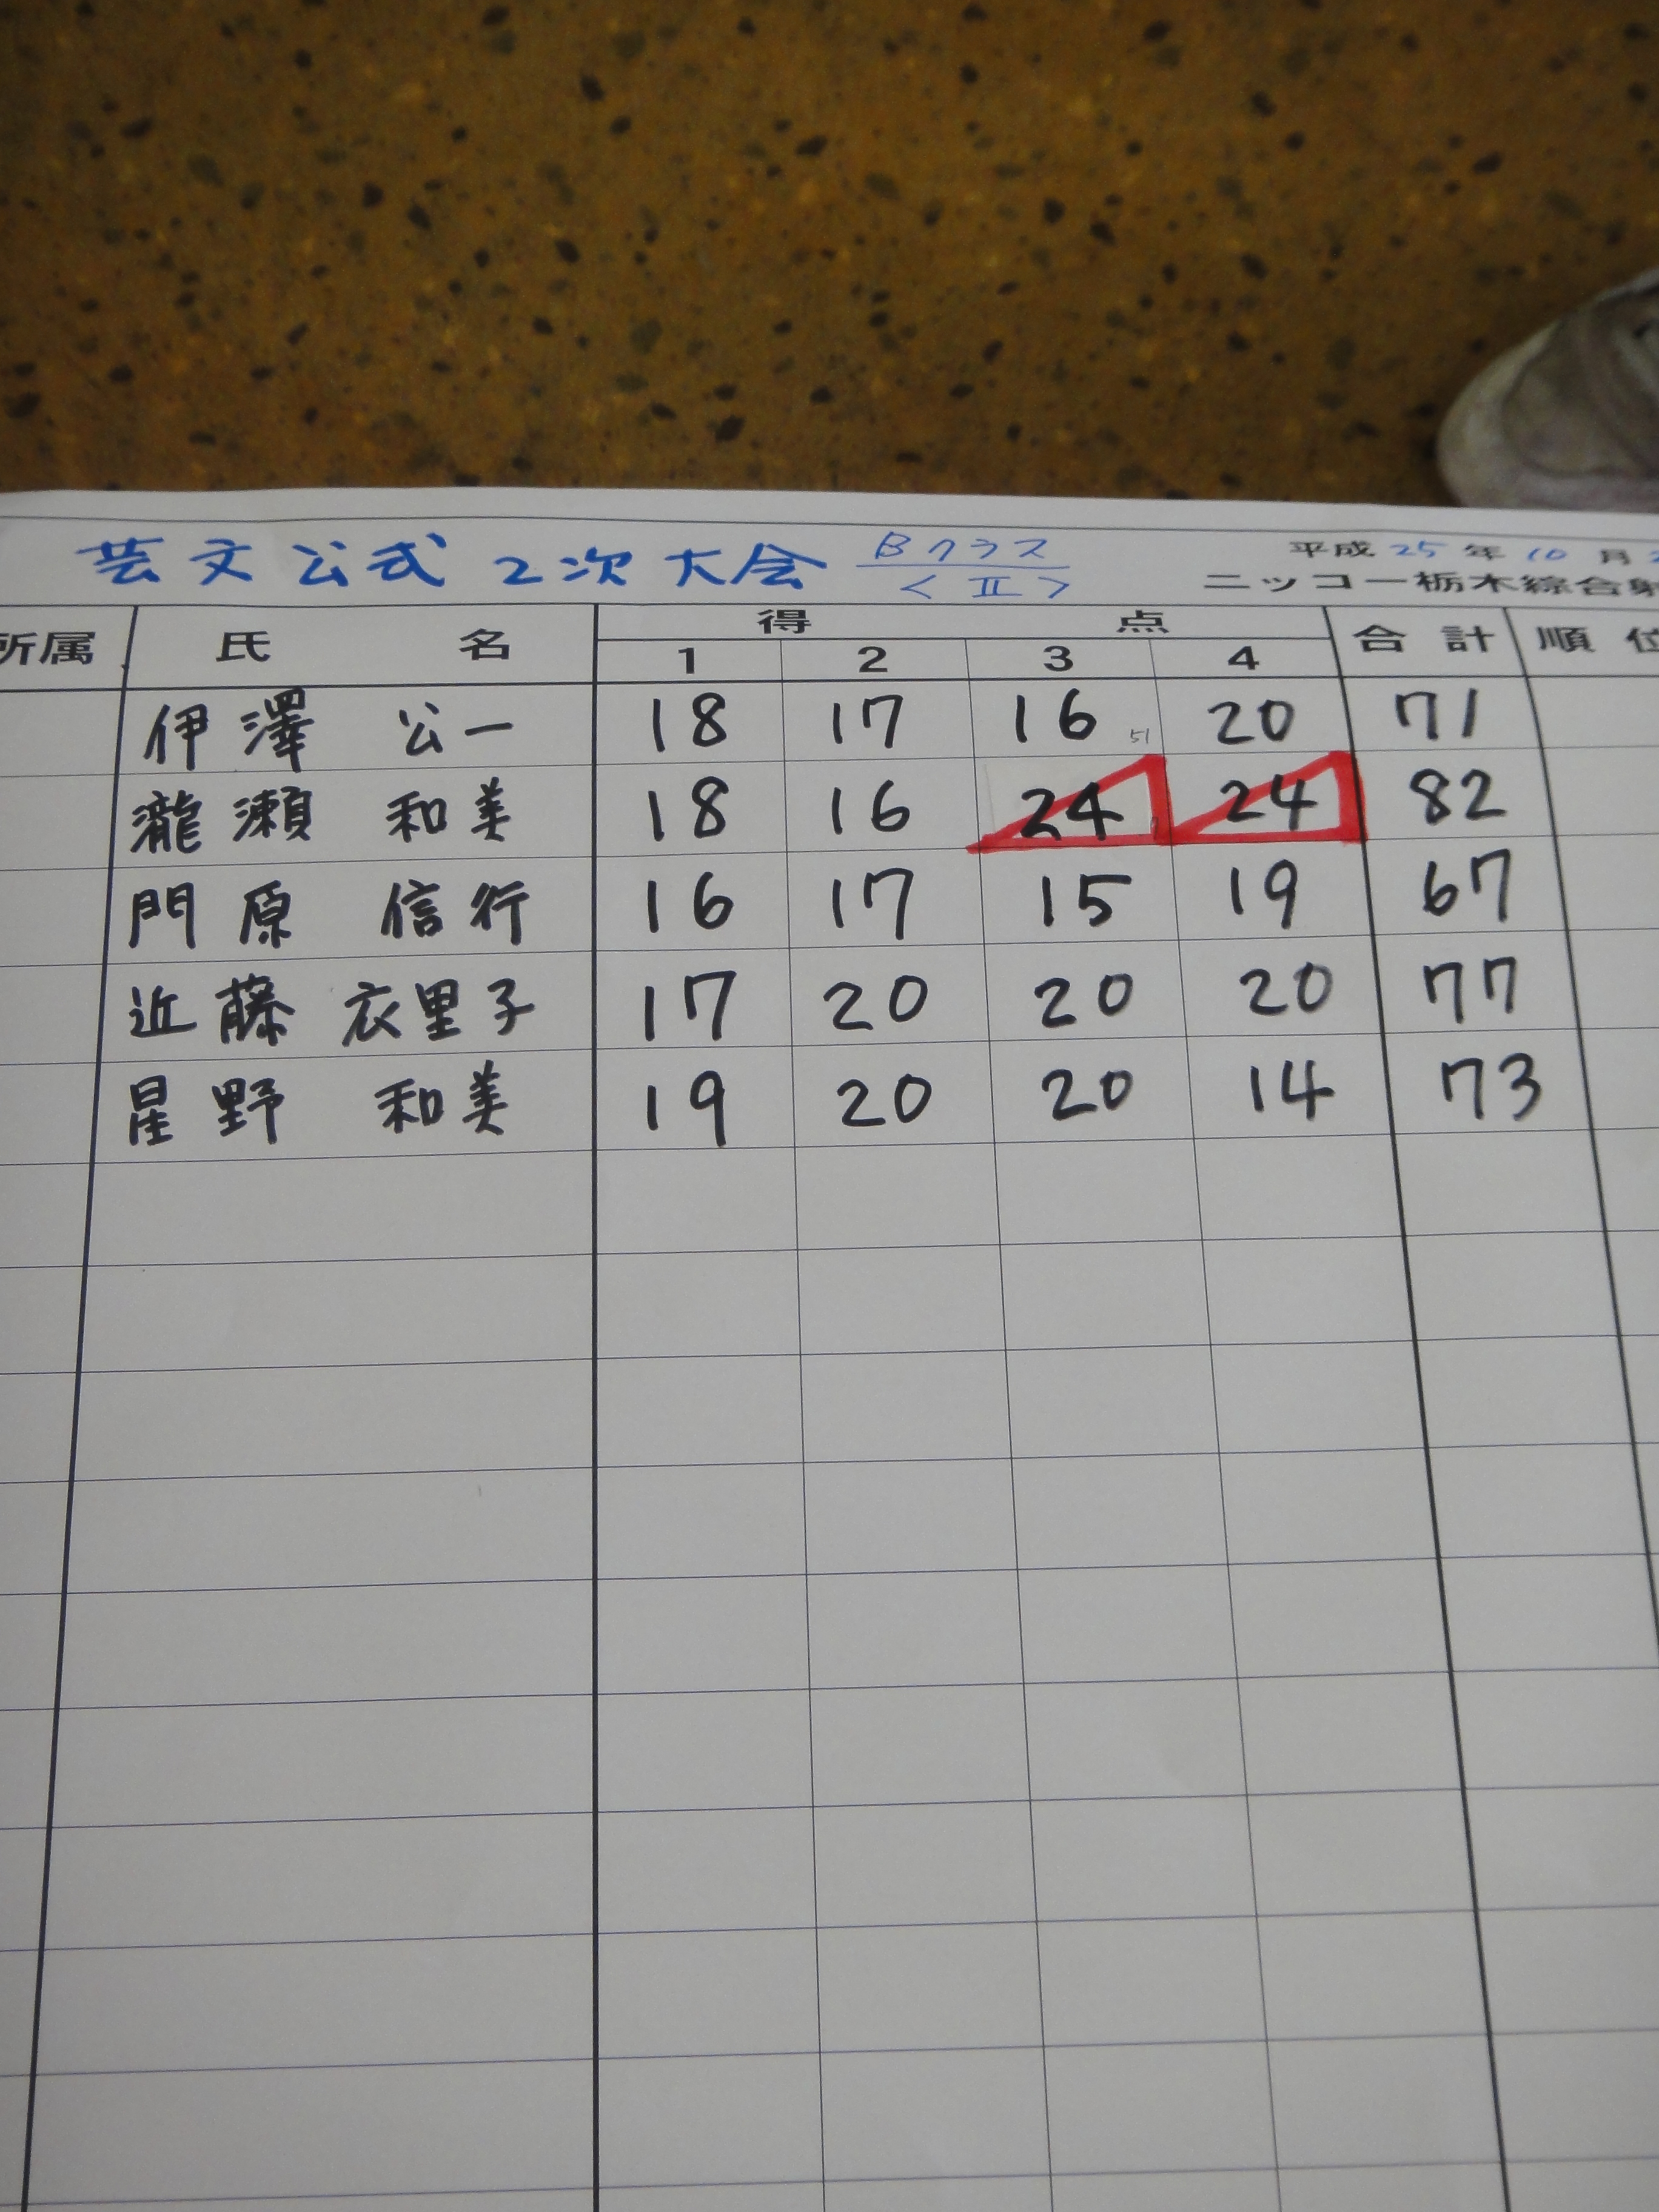 芸文公式2次大会 Bクラス 平成25年10月
<Ⅱ> ニッコー栃木綜合射
所属 氏名 得点 合計 順位
1 2 3 4
伊澤 公一 18 17 16 51 20 71
瀧瀬 和美 18 16 24 24 82
門原 信行 16 17 15 19 67
近藤 衣里子 17 20 20 20 77
星野 和美 19 20 20 14 73